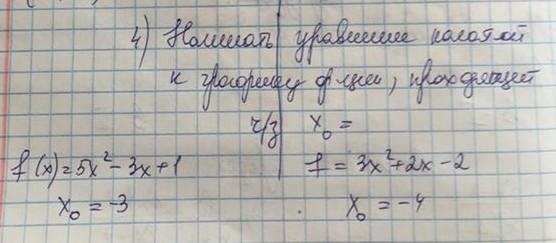 4) Написать уравнение касательной
к графику функции, проходящей
ч/з x₀ =
f(x) = 5x² - 3x + 1
x₀ = -3
f = 3x² + 2x - 2
x₀ = -4